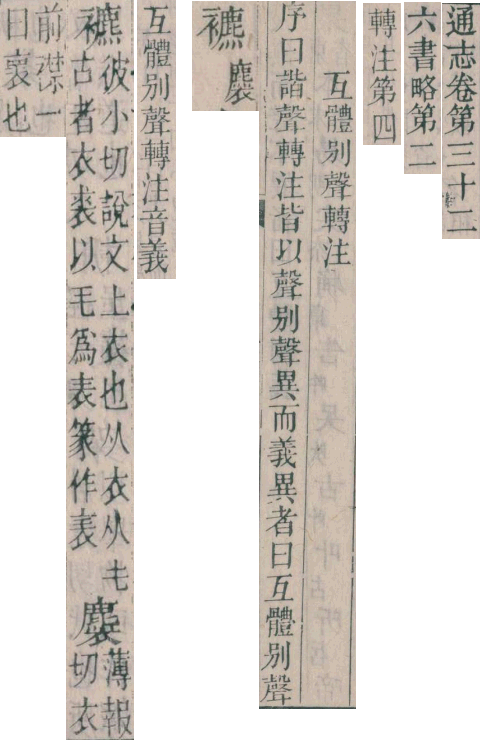 通志卷第三十二
六書略第二
轉注第四
互體別聲轉注
序曰諧聲轉注皆以聲別聲異而義異者曰互體別聲
䙳
互體別聲轉注音義
䙳彼小切說文上衣也从衣从毛
古者衣裘以毛爲表篆作表
薄報
切衣
前襟一
曰裒也